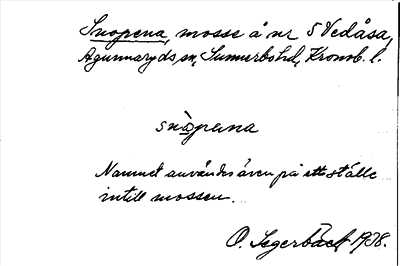 Snopena, mosse å nr 5 Vedåsa,
Agunnaryds sn, Sunnerbo hd, Kronob. l.
snò̱pena
Namnet användes även på ett ställe
intill mossen.
O. Segerbäck 1938.